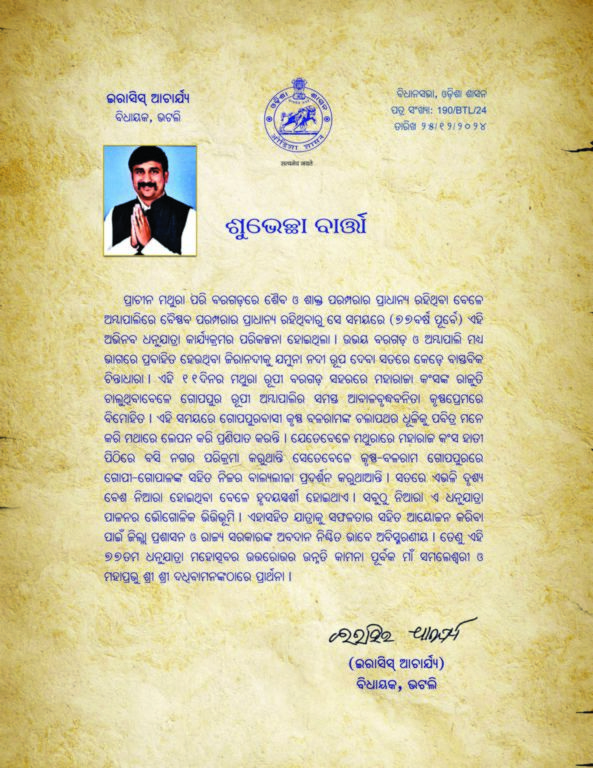 ଇରାସିସ୍ ଆଚାର୍ଯ୍ୟ
ବିଧାୟକ, ଭଟଲି
ବିଧାନସଭା, ଓଡ଼ିଶା ଶାସନ
ପତ୍ର ସଂଖ୍ୟା: 190/BTL/24
ତାରିଖ ୨୫/୧୨/୨୦୨୪
ଓଡ଼ିଶା ଶାସନ
सत्यमेव जयते
ଶୁଭେଚ୍ଛା ବାର୍ତ୍ତା
ପ୍ରାଚୀନ ମଥୁରା ପରି ବରଗଡ଼ରେ ଶୈବ ଓ ଶାକ୍ତ ପରମ୍ପରାର ପ୍ରାଧାନ୍ୟ ରହିଥିବା ବେଳେ
ଅମ୍ବାପାଲିରେ ବୈଷ୍ଣବ ପରମ୍ପରାର ପ୍ରାଧାନ୍ୟ ରହିଥିବାରୁ ସେ ସମୟରେ (୭୭ବର୍ଷ ପୂର୍ବେ) ଏହି
ଅଭିନବ ଧନୁଯାତ୍ରା କାର୍ଯ୍ୟକ୍ରମର ପରିକଳ୍ପନା ହୋଇଥିଲା । ଉଭୟ ବରଗଡ଼ ଓ ଅମ୍ବାପାଲି ମଧ୍ୟ
ଭାଗରେ ପ୍ରବାହିତ ହେଉଥିବା ଜିରାନଦୀକୁ ଯମୁନା ନଦୀ ରୂପ ଦେବା ସତରେ କେଡ଼େ ବାସ୍ତବିକ
ଚିନ୍ତାଧାରା । ଏହି ୧୧ଦିନର ମଥୁରା ରୂପୀ ବରଗଡ଼ ସହରରେ ମହାରାଜା କଂସଙ୍କ ରାଜୁତି
ଚାଲୁଥିବାବେଳେ ଗୋପପୁର ରୂପୀ ଅମ୍ବାପାଲିର ସମସ୍ତ ଆବାଳବୃଦ୍ଧବନିତା କୃଷ୍ଣପ୍ରେମରେ
ବିମୋହିତ । ଏହି ସମୟରେ ଗୋପପୁରବାସୀ କୃଷ୍ଣ ବଳରାମଙ୍କ ଚଲାପଥର ଧୂଳିକୁ ପବିତ୍ର ମନେ
କରି ମଥାରେ ଲେପନ କରି ପ୍ରଣିପାତ କରନ୍ତି । ଯେତେବେଳେ ମଥୁରାରେ ମହାରାଜ କଂସ ହାତୀ
ପିଠିରେ ବସି ନଗର ପରିକ୍ରମା କରୁଥାନ୍ତି ସେତେବେଳେ କୃଷ୍ଣ-ବଳରାମ ଗୋପପୁରରେ
ଗୋପୀ-ଗୋପାଳଙ୍କ ସହିତ ନିଜର ବାଲ୍ୟଲୀଳା ପ୍ରଦର୍ଶନ କରୁଥାଆନ୍ତି । ସତରେ ଏଭଳି ଦୃଶ୍ୟ
ବେଶ ନିଆରା ହୋଇଥିବା ବେଳେ ହୃଦୟସ୍ପର୍ଶୀ ହୋଇଥାଏ । ସବୁଠୁ ନିଆରା ଏ ଧନୁଯାତ୍ରା
ପାଳନର ଭୌଗୋଳିକ ଭିତ୍ତିଭୂମି । ଏହାସହିତ ଯାତ୍ରାକୁ ସଫଳତାର ସହିତ ଆୟୋଜନ କରିବା
ପାଇଁ ଜିଲ୍ଲା ପ୍ରଶାସନ ଓ ରାଜ୍ୟ ସରକାରଙ୍କ ଅବଦାନ ନିଶ୍ଚିତ ଭାବେ ଅବିସ୍ମରଣୀୟ । ତେଣୁ ଏହି
୭୭ତମ ଧନୁଯାତ୍ରା ମହୋତ୍ସବର ଉତ୍ତରୋତ୍ତର ଉନ୍ନତି କାମନା ପୂର୍ବକ ମାଁ ସମଲେଶ୍ୱରୀ ଓ
ମହାପ୍ରଭୁ ଶ୍ରୀ ଶ୍ରୀ ଦଧିବାମନଙ୍କଠାରେ ପ୍ରାର୍ଥନା ।
(ଇରାସିସ୍ ଆଚାର୍ଯ୍ୟ)
ବିଧାୟକ, ଭଟଲି